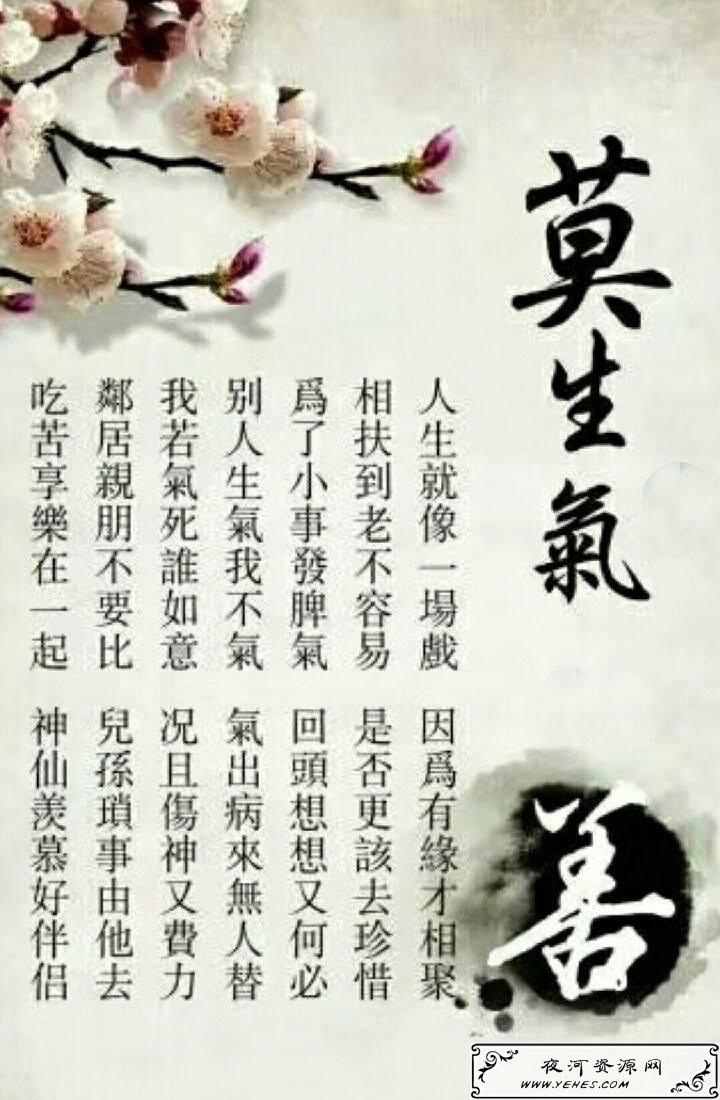 莫生氣
人生就像一場戲
因爲有緣才相聚
相扶到老不容易
是否更該去珍惜
爲了小事發脾氣
回頭想想又何必
别人生氣我不氣
氣出病來無人替
我若氣死誰如意
况且傷神又費力
鄰居親朋不要比
兒孫瑣事由他去
吃苦享樂在一起
神仙羡慕好伴侣
善
夜河资源网
WWW.YEHES.COM